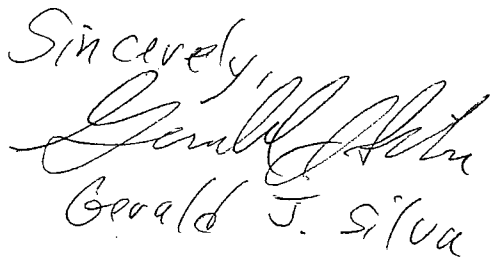 Sincerely,
Gerald J. Silva
Gerald J. Silva